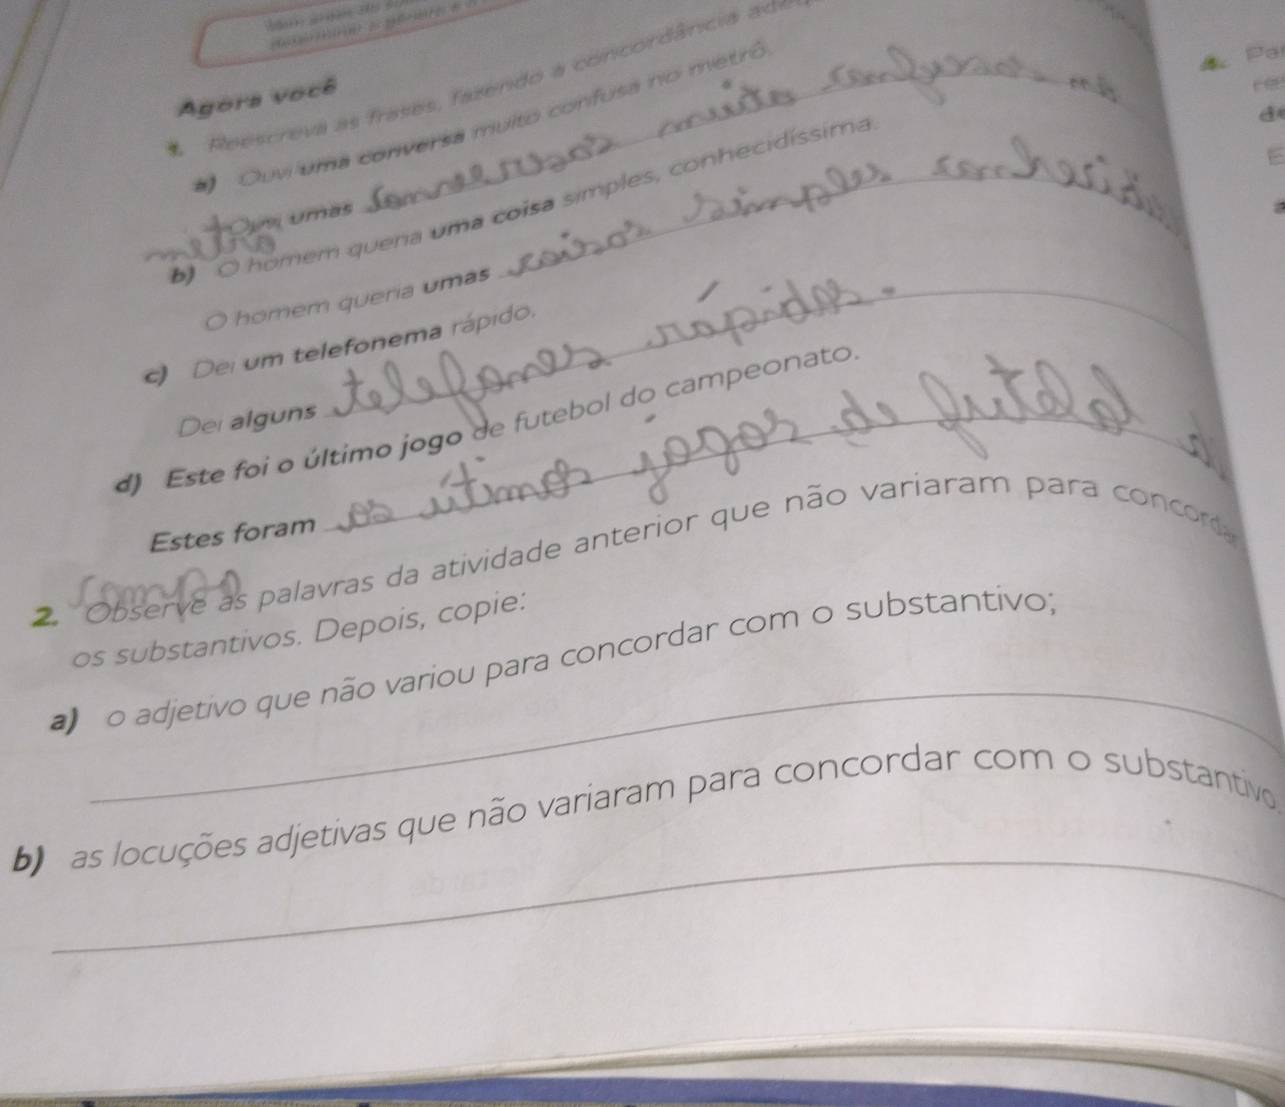 Agora você
1. Reescreva as frases, fazendo a concordância
a) Ouvi uma conversa muito confusa no metrô.
umas conversas muito confusas no
metrô
b) O homem queria uma coisa simples, conhecidíssima.
O homem queria umas coisas simples
c) Dei um telefonema rápido.
Dei alguns telefomes rápidos.
d) Este foi o último jogo de futebol do campeonato.
Estes foram os útimos jogos de futebol
2. Observe as palavras da atividade anterior que não variaram para concordar
os substantivos. Depois, copie:
a) o adjetivo que não variou para concordar com o substantivo;
b) as locuções adjetivas que não variaram para concordar com o substantivo